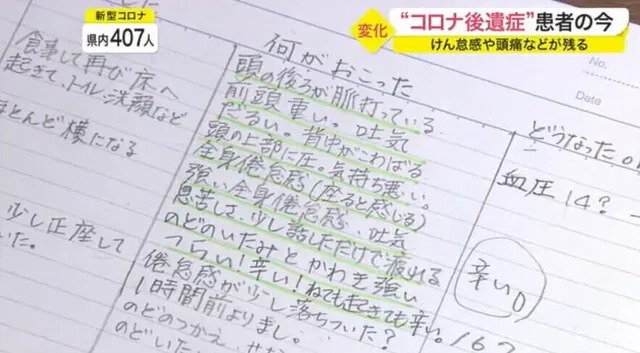 新型コロナ
県内407人
変化
“コロナ後遺症”患者の今
けん怠感や頭痛などが残る
No.
Date
食事して再び床へ
起きて、トイレ、洗顔など
ほとんど横になる
少し正座して
いた。
何がおこった
頭の後ろが脈打っている
前頭重い。吐気
だるい。背中がこわばる
頭の上部に圧。気持ち悪い。
全身倦怠感(座ると感じる)
強い全身倦怠感、吐気
息苦しさ、少し話しただけで疲れる
のどのいたみとかわき強い
つらい!辛い!ねても起きても辛い。
倦怠感が少し落ちついた?
1時間前よりまし。
のどのつかえ、
のどいた
どうなった
血圧14?
辛い